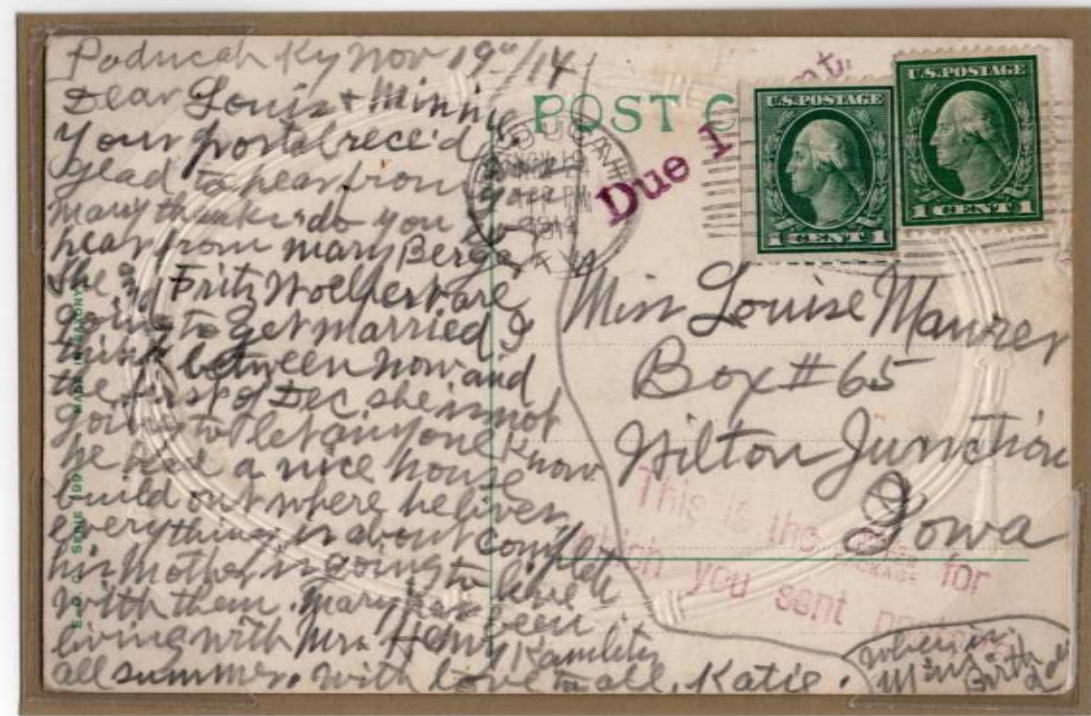 Paducah Ky Nov 19"/14
Dear Louis & Minnie
Your postal rece'd
glad to hear from you
many thanks do you ever
hear from Mary Berge
she and Fritz Woelpert are
going to get married I
think between now and
the first of Dec. she is not
going to let anyone know
he had a nice house
build out where he lives
everything is about complete
his Mother is going to live
with them. Mary has been
living with Mrs. Henry
all summer. with love to all, Katie.
POST C
Due 1
U.S. POSTAGE
1 CENT 1
U.S. POSTAGE
1 CENT 1
NOV 19
PM
1914
KY
Miss Louise Maurer
Box #65
Wilton Junction
Iowa
This is the
for
which you sent
when is
Birth
SERIE 199